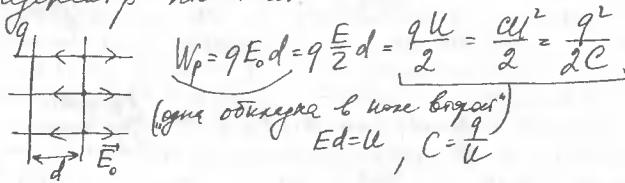 q
W_p = qE_0d = q E/2 d = qU/2 = CU²/2 = q²/2C
("одна обкладка в поле второй")
Ed = U, C = q/U
d
E⃗_0